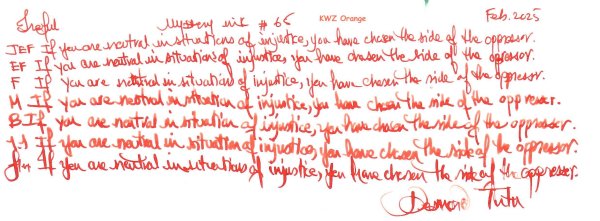 Mystery ink # 66 KWZ Orange Feb. 2025
JEF If you are neutral in situations of injustice, you have chosen the side of the oppressor.
EF If you are neutral in situations of injustice, you have chosen the side of the oppressor.
F If you are neutral in situation of injustice, you have chosen the side of the oppressor.
M If you are neutral in situation of injustice, you have chosen the side of the oppressor.
B If you are neutral in situation of injustice, you have chosen the side of the oppressor.
1.1 If you are neutral in situation of injustice, you have chosen the side of the oppressor.
If you are neutral in situations of injustice, you have chosen the side of the oppressor.
Desmond Tutu